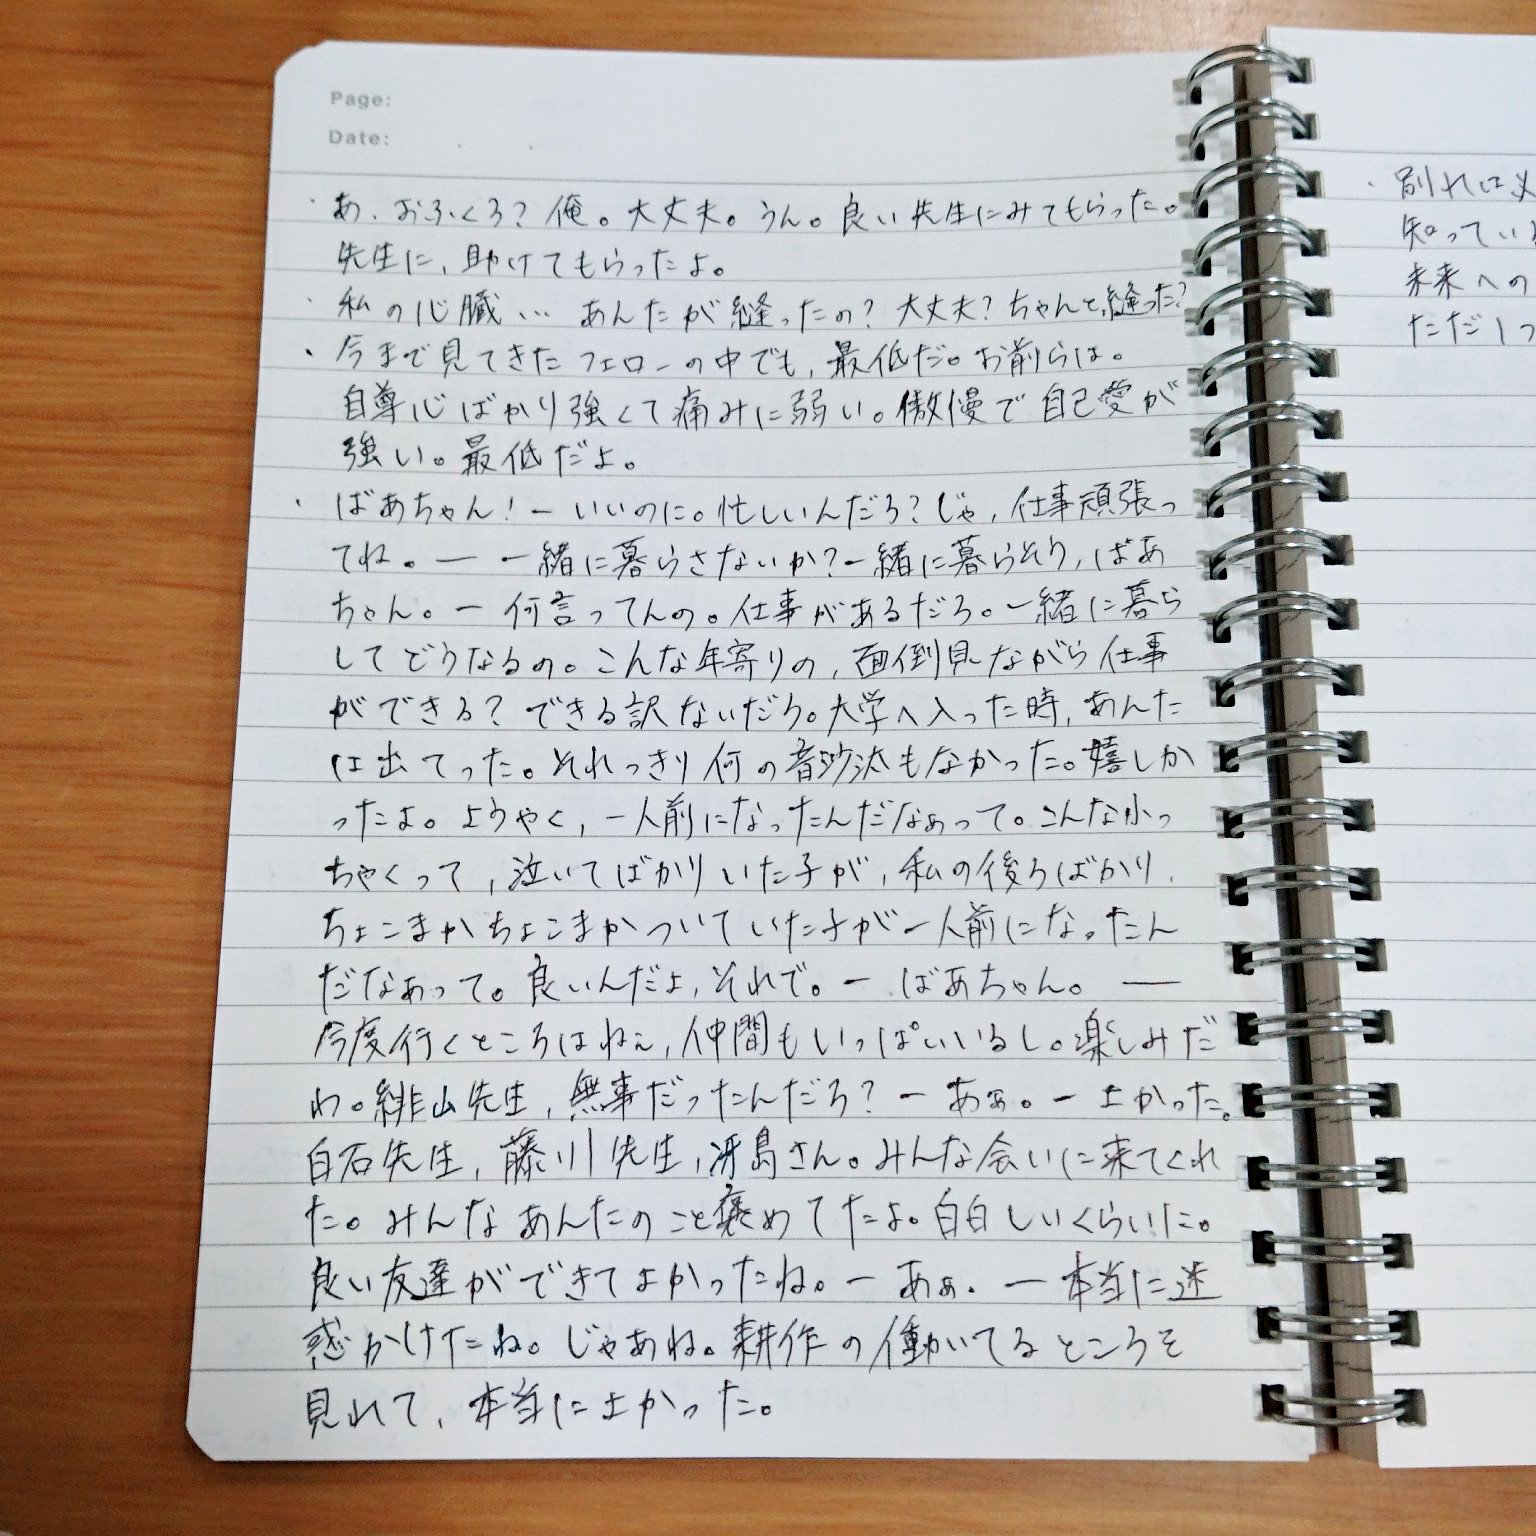 Page:
Date:
・あ、おふくろ？俺。大丈夫。うん。良い先生にみてもらった。
先生に、助けてもらったよ。
・私の心臓… あんたが縫ったの？大丈夫？ちゃんと縫った？
・今まで見てきたフェローの中でも、最低だ。お前らは。
自尊心ばかり強くて痛みに弱い。傲慢で自己愛が
強い。最低だよ。
・ばあちゃん！ー いいのに。忙しいんだろ？じゃ、仕事頑張っ
てね。ー ー緒に暮らさないか？一緒に暮らそう、ばあ
ちゃん。ー 何言ってんの。仕事があるだろ。一緒に暮ら
してどうなるの。こんな年寄りの、面倒見ながら仕事
ができる？できる訳ないだろ。大学へ入った時、あんた
は出てった。それっきり何の音沙汰もなかった。嬉しか
ったよ。ようやく、一人前になったんだなぁって。こんな小っ
ちゃくって、泣いてばかりいた子が、私の後ろばかり、
ちょこまかちょこまかついていた子が一人前になったん
だなぁって。良いんだよ、それで。ー ばあちゃん。ー
今度行くところはねぇ、仲間もいっぱいいるし。楽しみだ
わ。緋山先生、無事だったんだろ？ー あぁ。ー よかった。
白石先生、藤川先生、冴島さん。みんな会いに来てくれ
た。みんなあんたのこと褒めてたよ。白白しいくらいに。
良い友達ができてよかったね。ー あぁ。ー 本当に迷
惑かけたね。じゃあね。耕作の働いてるところを
見れて、本当によかった。
・別れは
知っている
未来への
ただ1つ